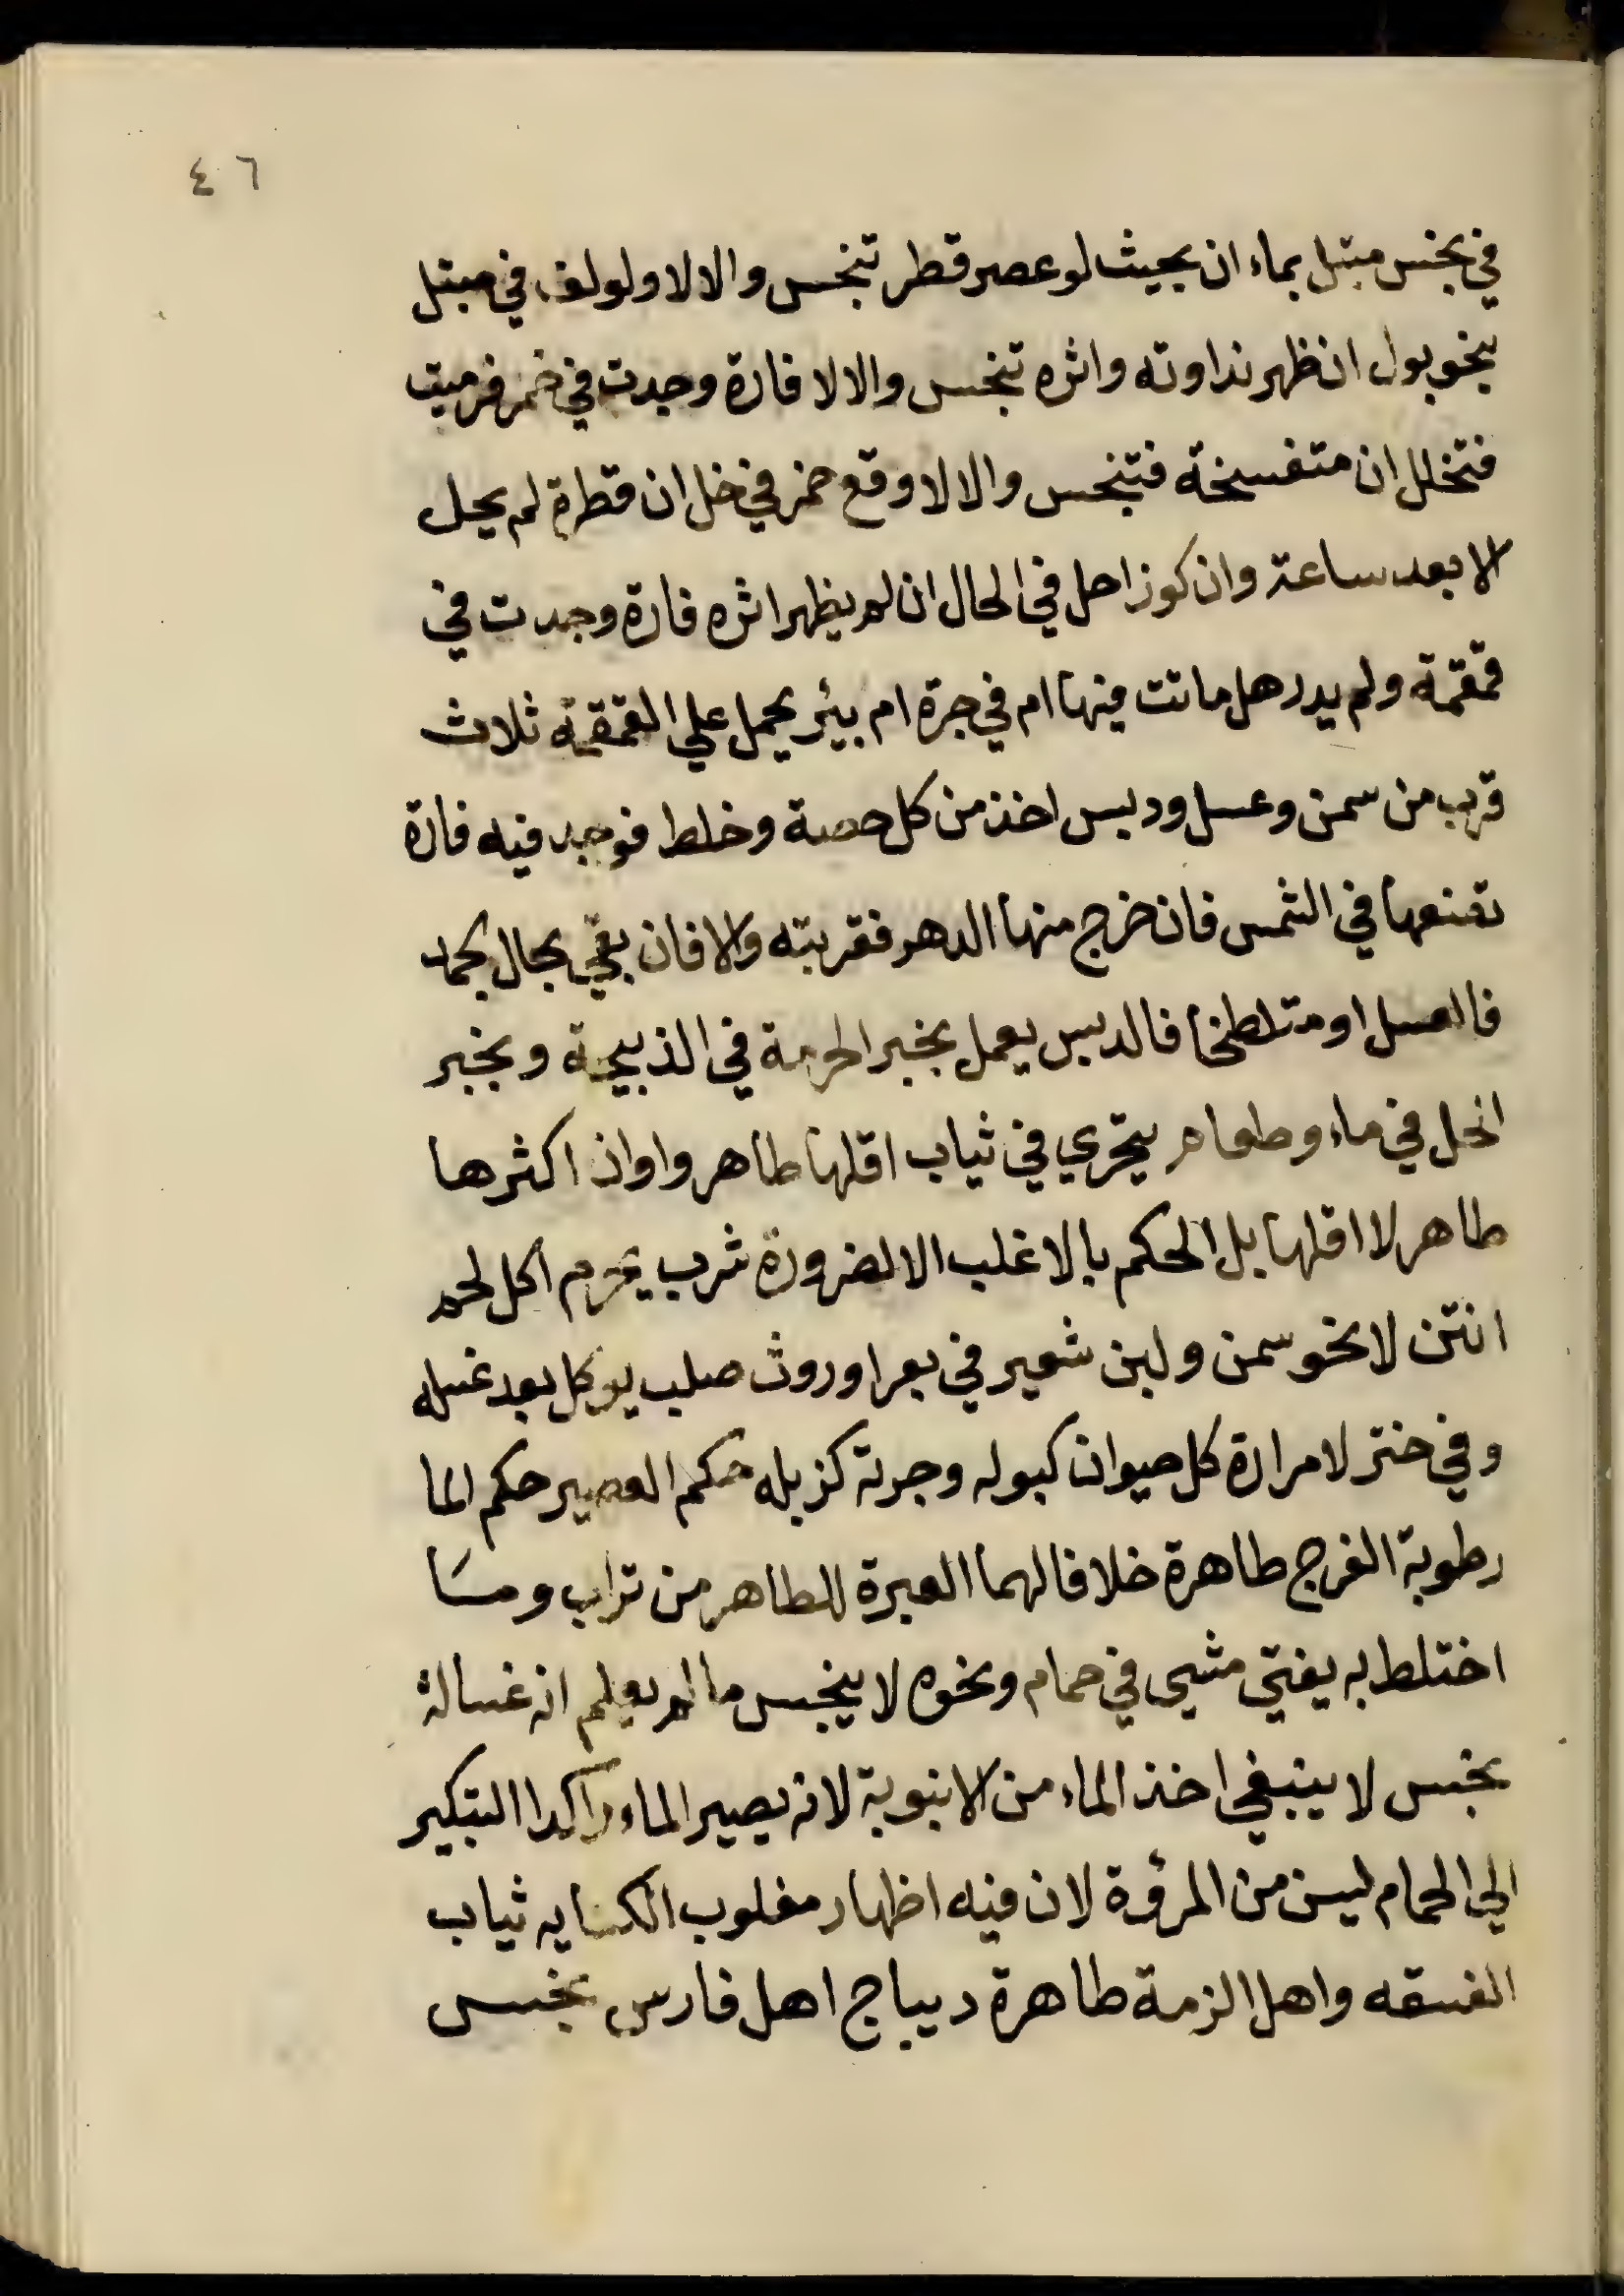 ٤٦
في نجس مبتل بماء ان بحيث لو عصر قطر تنجس والا لا ولو لف في مبتل
بنحو بول ان ظهر نداوته واثره تنجس والا لا فارة وجدت في خمر فرميت
فتخلل ان متفسخة فتنجس والا لا وقع خمر في خل ان قطرة لم يحل
الا بعد ساعة وان كوزا حل في الحال ان لم يظهر اثره فارة وجدت في
قمقمة ولم يدر هل ماتت فيها ام في جرة ام بئر يحمل علي القمقمة ثلاث
قرب من سمن وعسل ودبس اخذ من كل حصة وخلط فوجد فيه فارة
تضعها في الشمس فان خرج منها الدهن فقربته والا فان بقي بحال الجمد
فالعسل او متلطخا فالدبس يعمل بخبر الحرمة في الذبيحة وبخبر
الحل في ماء وطعام يتحري في ثياب اقلها طاهر واوان اكثرها
طاهر لا اقلها بل الحكم بالاغلب الا لضرورة شرب يحرم اكل لحم
انتن لا نحو سمن ولبن شعير في بعر او روث صلب يوكل بعد غسله
وفي خثر لا مرارة كل حيوان كبوله وجرته كزبله حكم العصير حكم الما
رطوبة الفرج طاهرة خلافا لهما العبرة للطاهر من تراب وما
اختلط به يفتي مشي في حمام ونحوه لا ينجس ما لم يعلم انه غسالة
نجس لا ينبغي اخذ الماء من الانبوبة لانه يصير الماء راكدا التبكير
الي الحمام ليس من المرؤة لان فيه اظهار مغلوب الكنايه ثياب
الفسقه واهل الزمة طاهرة ديباج اهل فارس نجس